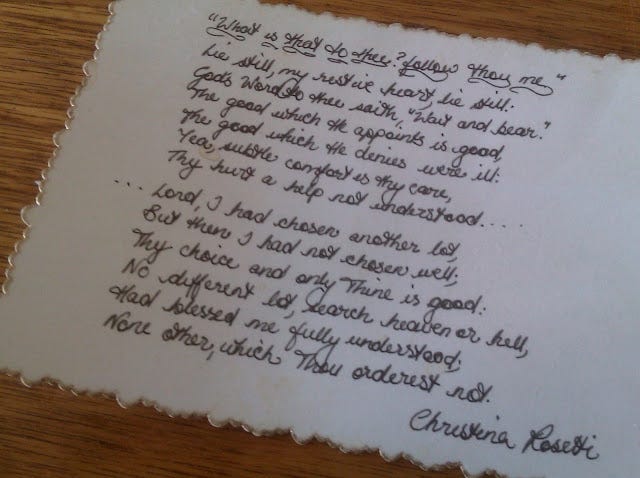 "What is that to thee? follow thou me"
Lie still, my restive heart, lie still.
God's Word to thee saith, "Wait and bear."
The good which He appoints is good,
The good which He denies were ill:
Yea, subtle comfort is thy care,
Thy hurt a help not understood....
.... Lord, I had chosen another lot,
But then I had not chosen well;
Thy choice and only Thine is good:
No different lot, search heaven or hell,
Had blessed me fully understood;
None other, which Thou orderest not.
Christina Rosetti